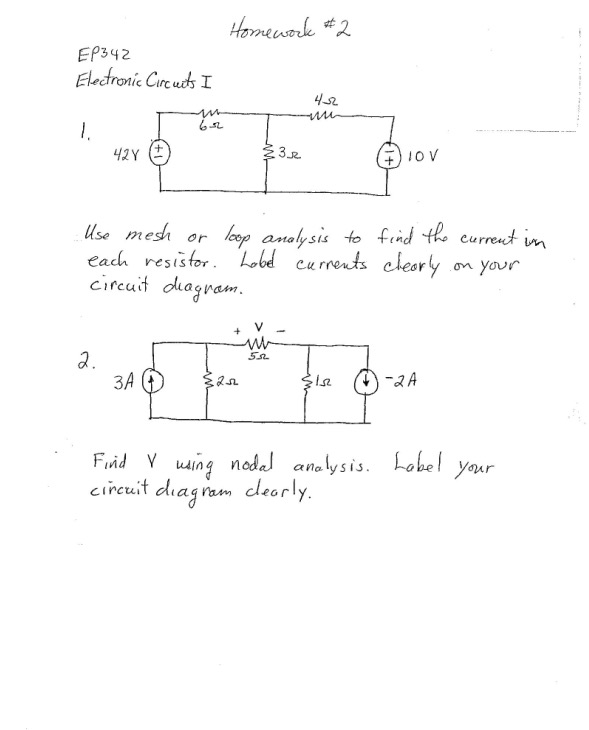 Homework #2
EP342
Electronic Circuits I
1.
4Ω
6Ω
42V
+
-
3Ω
-
+
10V
Use mesh or loop analysis to find the current in
each resistor. Label currents clearly on your
circuit diagram.
2.
+ V -
5Ω
3A
2Ω
1Ω
-2A
Find V using nodal analysis. Label your
circuit diagram clearly.